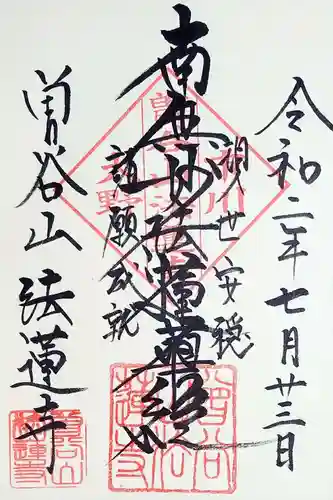 令和二年七月廿三日
現世安穏
南無妙法蓮華経
諸願成就
曽谷山 法蓮寺